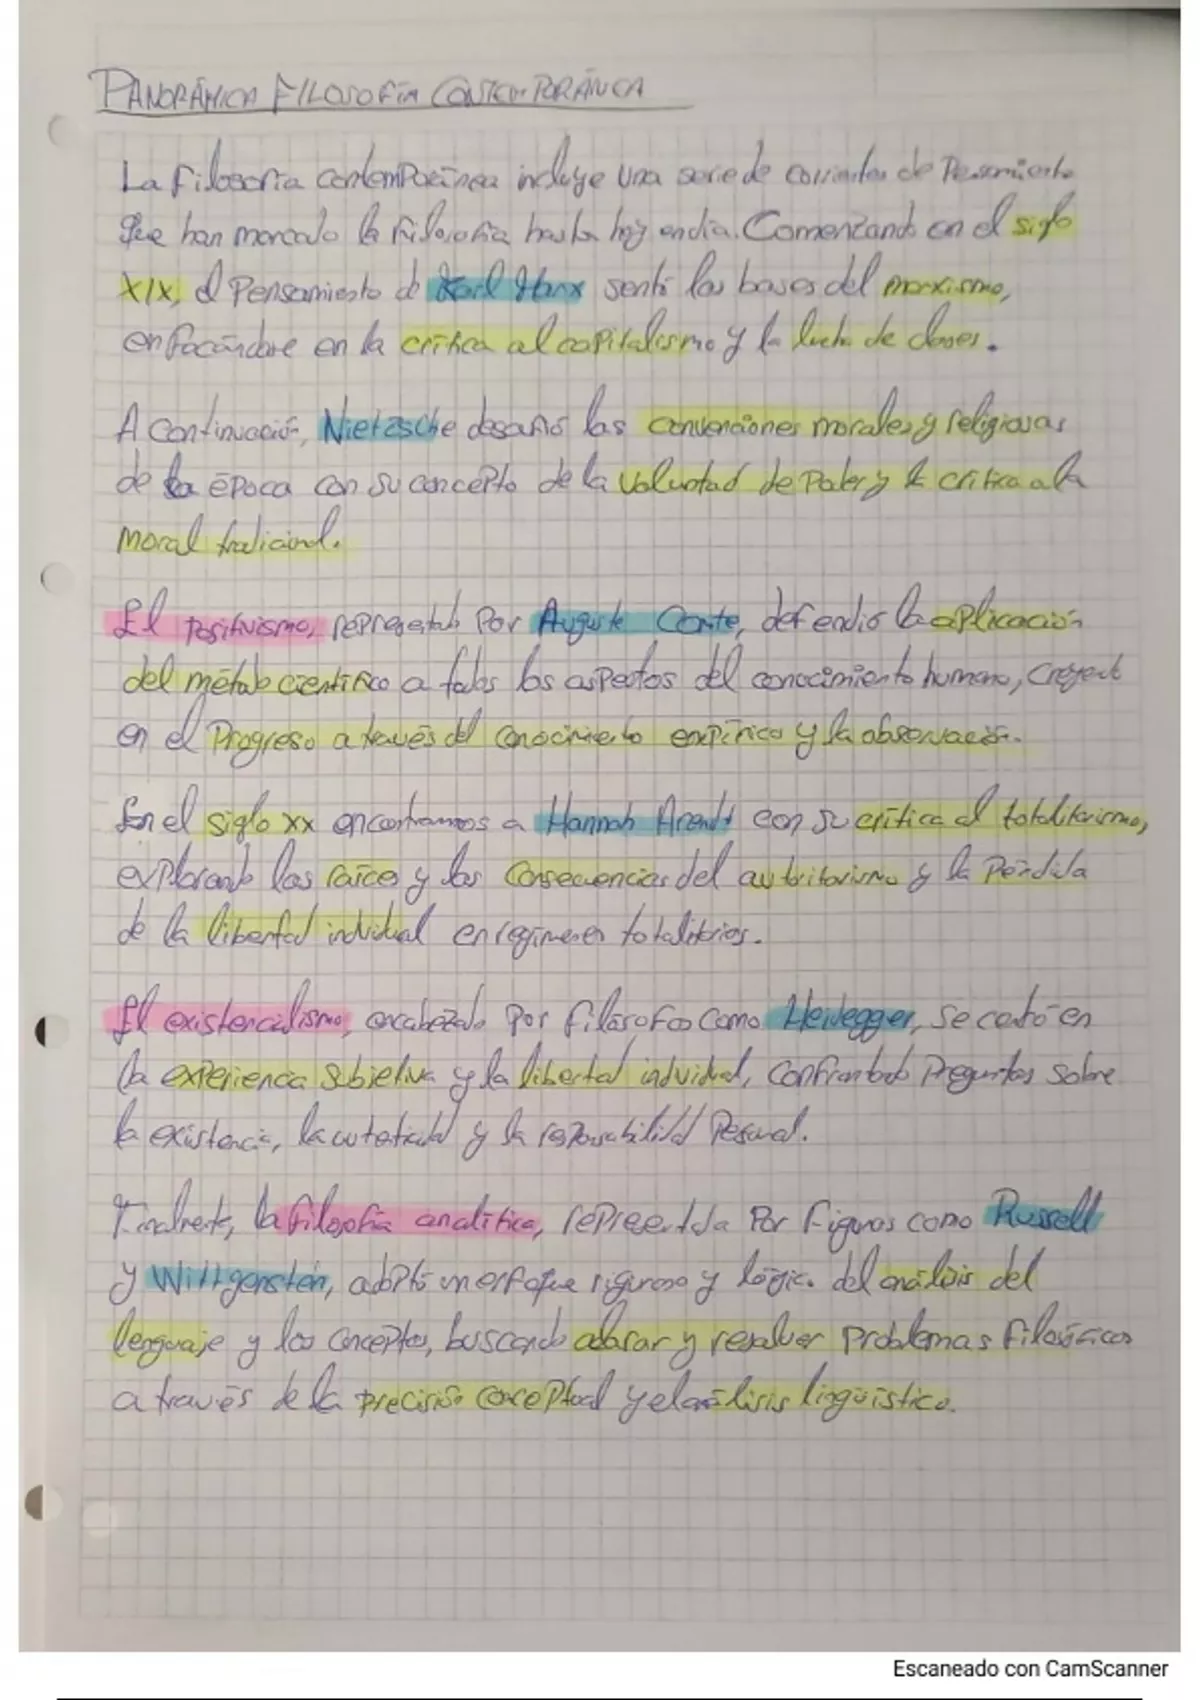 PANORÁMICA FILOSOFÍA CONTEMPORÁNEA
La Filosofía contemporánea incluye una serie de corrientes de Pensamiento
que han marcado la Filosofía hasta hoy en día. Comenzando en el siglo
XIX, el Pensamiento de Karl Marx sentó las bases del marxismo,
enfocándose en la crítica al capitalismo y la lucha de clases.
A Continuación, Nietzsche desafió las convenciones morales y religiosas
de la época con su concepto de la voluntad de Poder y la crítica a la
moral tradicional.
El Positivismo, representado Por Auguste Comte, defendió la aplicación
del método científico a todos los aspectos del conocimiento humano, creyendo
en el Progreso a través del conocimiento empírico y la observación.
En el siglo XX encontramos a Hannah Arendt con su crítica al totalitarismo,
explorando las raíces y las Consecuencias del autoritarismo y la Pérdida
de la libertad individual en regímenes totalitarios.
El existencialismo, encabezado Por filósofos como Heidegger, se centró en
la experiencia subjetiva y la libertad individual, confrontando Preguntas sobre
la existencia, la autenticidad y la responsabilidad Personal.
Finalmente, la filosofía analítica, representada Por Figuras como Russell
y Wittgenstein, adoptó un enfoque riguroso y lógico del análisis del
lenguaje y los conceptos, buscando aclarar y resolver Problemas Filosóficos
a través de la precisión conceptual y el análisis lingüístico.
Escaneado con CamScanner